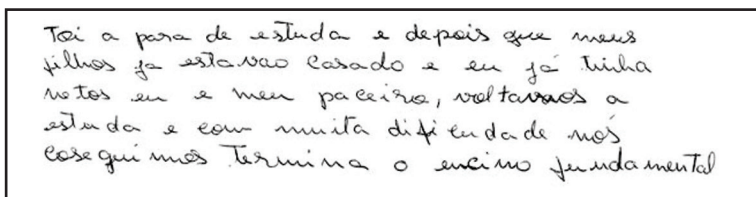 Toi a para de estuda e depois que meus
filhos ja estavao casado e eu já tinha
netos eu e meu paceiro, voltavaos a
estuda e com muita dificudade nós
coseguimos Termina o encino fundamental